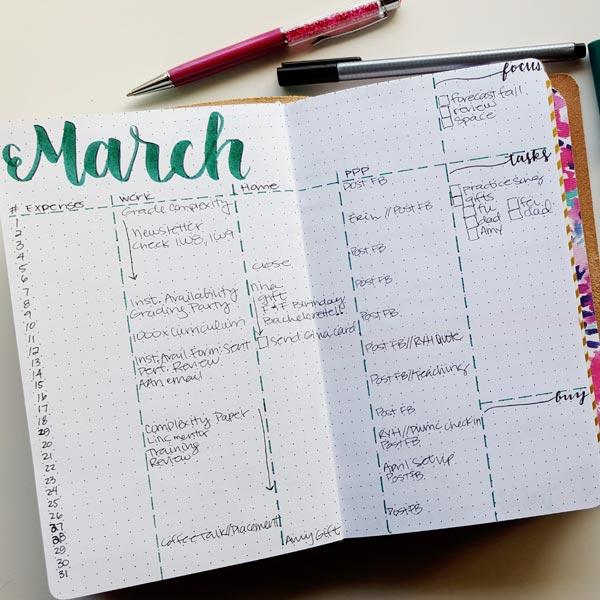 March
# Expenses
Work
Home
PPP
1
2
3
4
5
6
7
8
9
10
11
12
13
14
15
16
17
18
29
20
21
22
23
24
25
26
27
28
29
30
31
Grade Complexity
newsletter
Check IW8, IW9
Inst. Availability
Grading Party
1000x curriculum
Inst. Avail. Form: Sent
Perf. Review
AAn email
Complexity Paper
Linc mentor
Training
Review
Coffee Talk//Placement
close
nina
gift
F + F Birthday
Bachelorette!!
Send Gina card
Amy Gift
Post FB
Erin // Post FB
Post FB
Post FB
Post FB
Post FB//RYH Quote
Post FB//Teaching
Post FB
RYH//PWMC check in
Post FB
April Set up
Post FB
Post FB
focus
forecast fall
review
space
tasks
practice song
gifts
dad
Amy
dad
buy